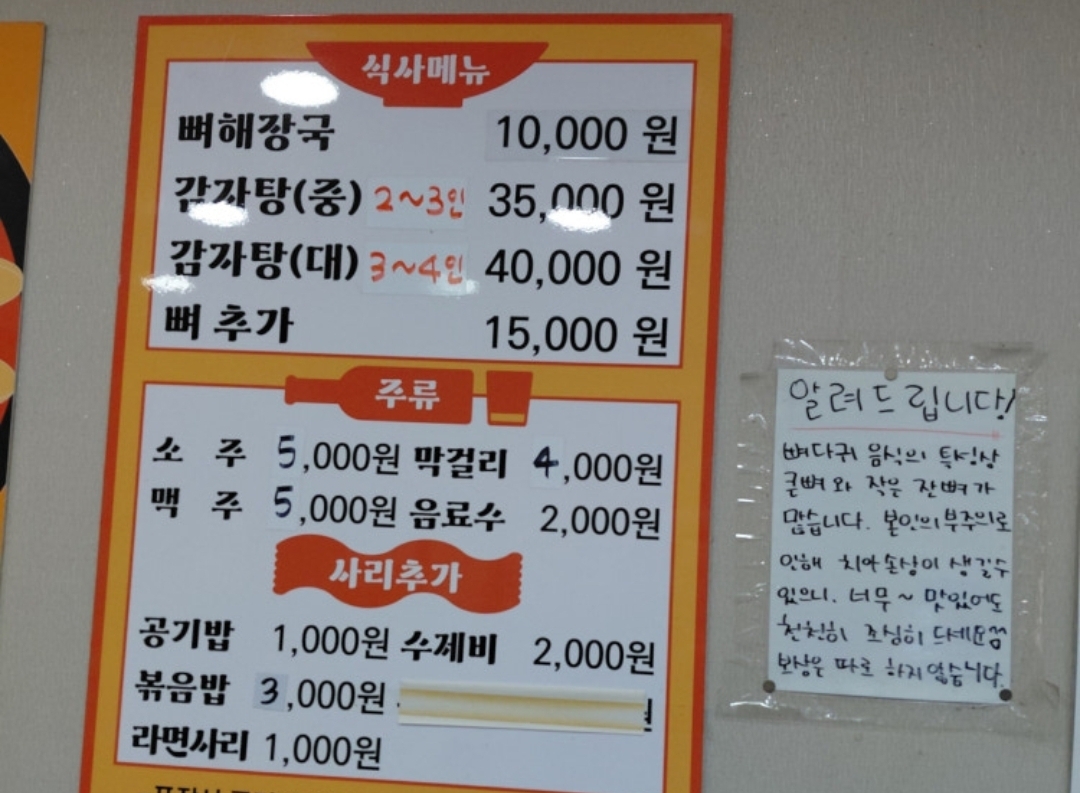 식사메뉴
뼈해장국 10,000 원
감자탕(중) 2~3인 35,000 원
감자탕(대) 3~4인 40,000 원
뼈 추가 15,000 원
주류
소 주 5,000원 막걸리 4,000원
맥 주 5,000원 음료수 2,000원
사리추가
공기밥 1,000원 수제비 2,000원
볶음밥 3,000원
라면사리 1,000원
알려드립니다!
뼈다귀 음식의 특성상
큰뼈와 작은 잔뼈가
많습니다. 본인의부주의로
인해 치아손상이 생길수
있으니. 너무~ 맛있어도
천천히 조심히 드세요꼭
보상은 따로 하지않습니다.